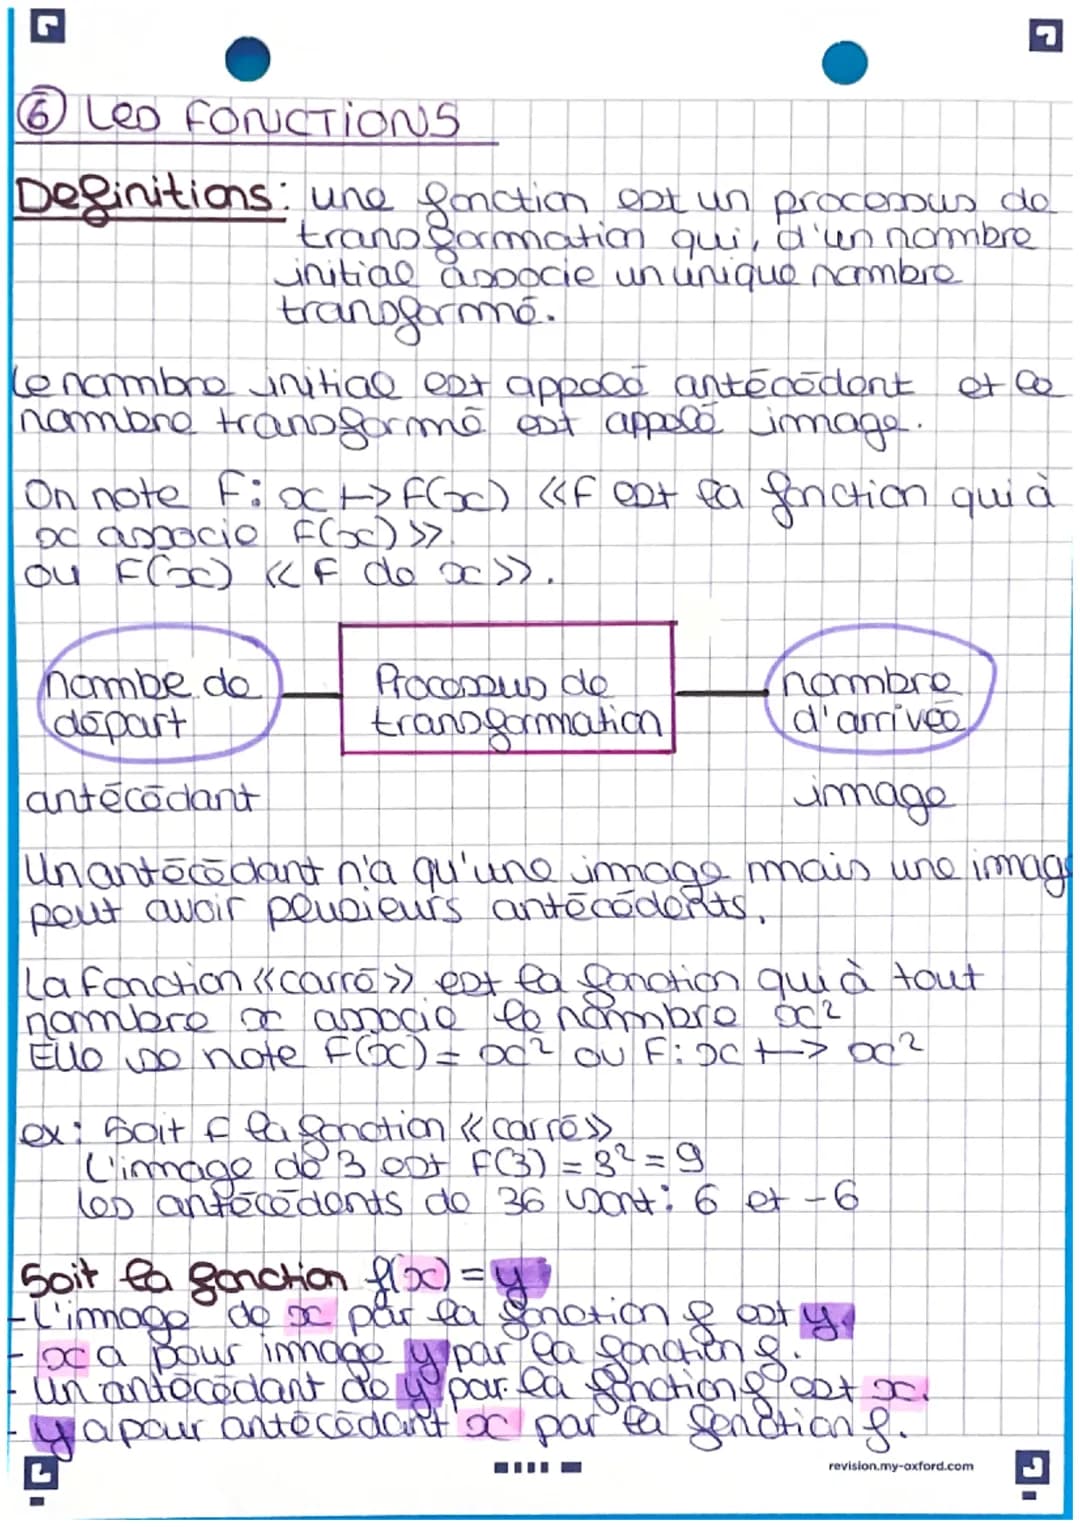 ⑥ Les FONCTIONS
Definitions: une fonction est un processus de
transformation qui, d'un nombre
initial associe un unique nombre
transformé.
Le nombre initial est appelé antécédent et le
nombre transformé est appelé image.
On note F: x ↦ F(x) «F est la fonction qui à
x associe F(x)»
ou F(x) «F de x».
nombe de
départ
Processus de
transformation
nombre
d'arrivée
antécédant
image
Un antécédant n'a qu'une image mais une image
peut avoir plusieurs antécédents.
La fonction «carré» est la fonction qui à tout
nombre x associe le nombre x²
Elle se note F(x) = x² ou F: x ↦ x²
ex: Soit F la fonction «carré»
L'image de 3 est F(3) = 3² = 9
les antécédents de 36 sont: 6 et -6
Soit la fonction f(x) = y
- L'image de x par la fonction f est y.
- x a pour image y par la fonction f.
- Un antécédant de y par la fonction f est x.
- y a pour antécédant x par la fonction f.
revision.my-oxford.com